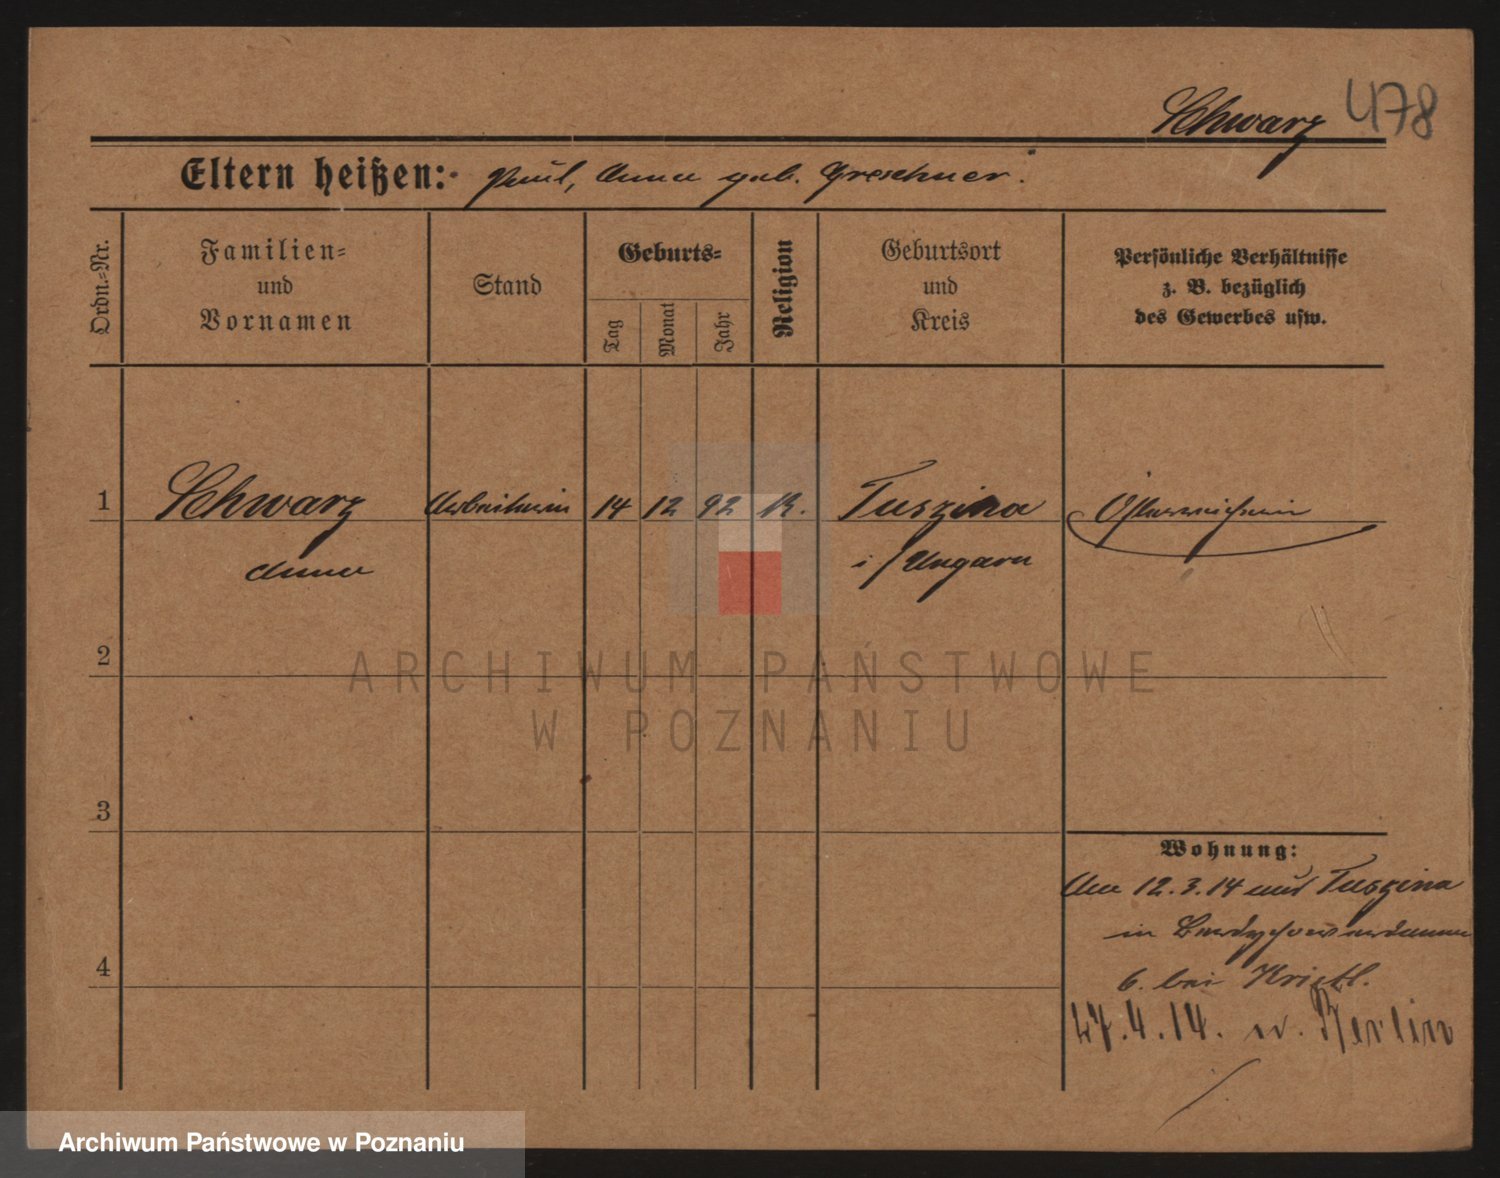 Schwarz 478
Eltern heißen: Paul, Anna geb. Greschner.
Ordn.=Nr.
Familien=
und
Vornamen
Stand
Geburts=
Tag
Monat
Jahr
Religion
Geburtsort
und
Kreis
Persönliche Verhältnisse
z. B. bezüglich
des Gewerbes usw.
1 Schwarz Arbeiterin 14 12 92 K. Tuszina Österreicherin
Anna i/Ungarn
2
ARCHIWUM PAŃSTWOWE
W POZNANIU
3
Wohnung:
Am 12.3.14 aus Tuszina
in
4
6. bei
27.4.14. n. Berlin
Archiwum Państwowe w Poznaniu